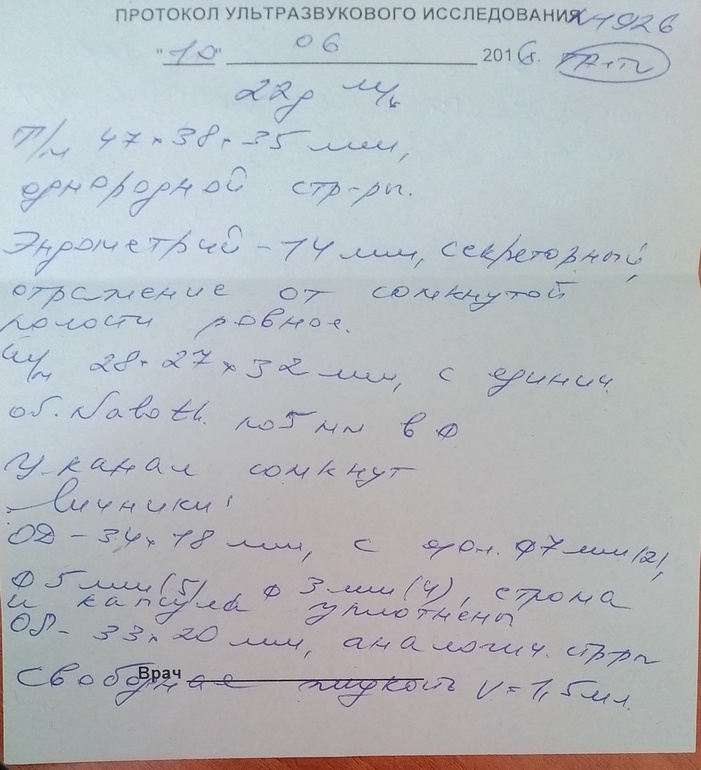 ПРОТОКОЛ УЛЬТРАЗВУКОВОГО ИССЛЕДОВАНИЯ №1926
"10" 06 2016г.
22д м/ц
Т/м 47×38×35 мм,
однородной стр-ры.
Эндометрий - 14 мм, секреторный,
отражение от сомкнутой
полости ровное.
ш/м 28×27×32 мм, с единич.
об. Naboth. по 5 мм в ф
ц. канал сомкнут
Яичники:
OD - 34×18 мм, с ф 7 мм (2),
ф 5 мм (5), ф 3 мм (4), строма
и капсула уплотнены
OS - 33×20 мм, аналогич. стр-ры
Свободная жидкость V = 1,5 мл.
Врач